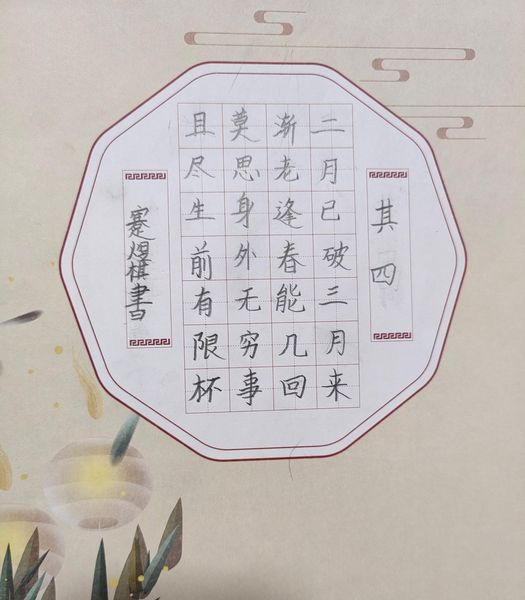 其四
二月已破三月来
渐老逢春能几回
莫思身外无穷事
且尽生前有限杯
蹇煜棋書